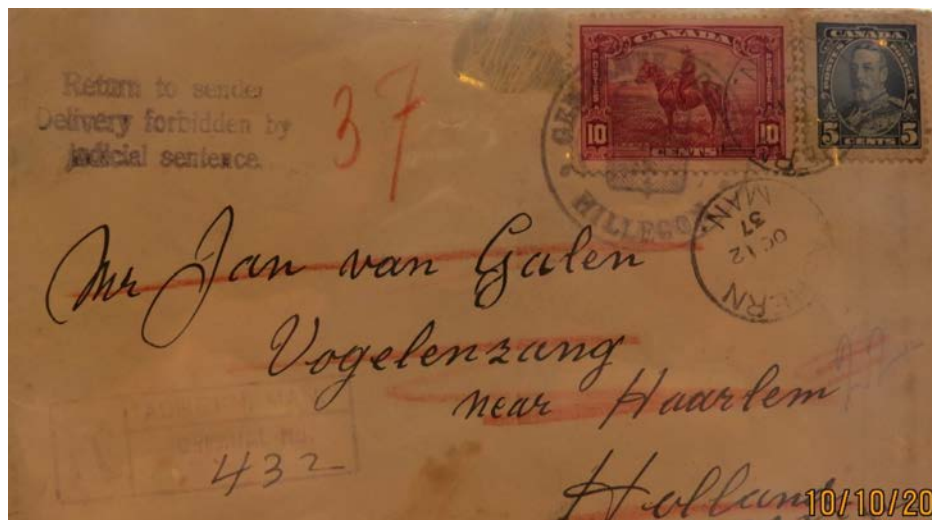 Return to sender
Delivery forbidden by
judicial sentence
37
CANADA
10 10
CENTS
CANADA
POSTES POSTAGE
5 CENTS 5
HILLEGOM
MAN.
OC 12
37
ERN
Mr Jan van Galen
Vogelenzang
near Haarlem
Holland
ORIGINAL No.
432
10/10/20